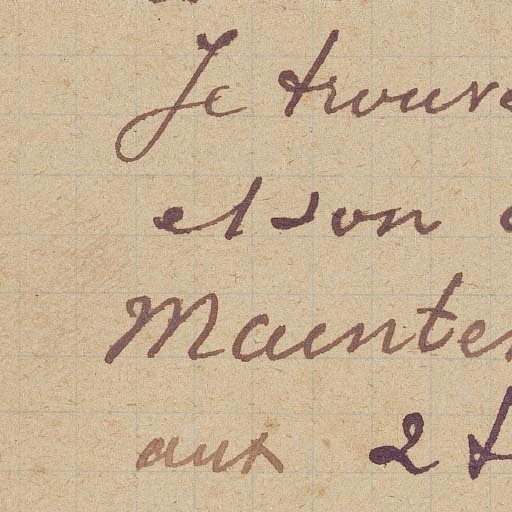 Je trouve
et son
Mainten
aux 2